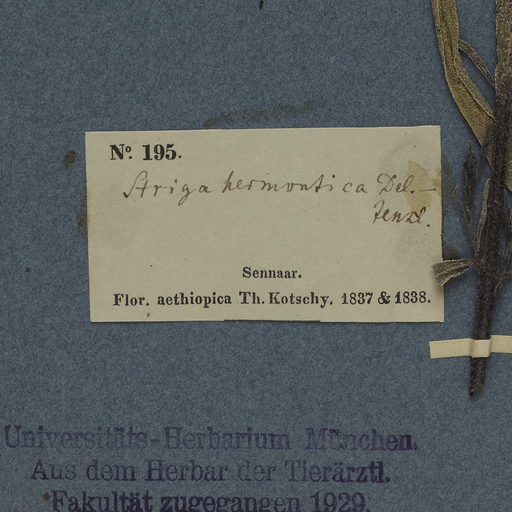 No. 195.
Striga hermontica Del. –
Fenzl.
Sennaar.
Flor. aethiopica Th. Kotschy. 1837 & 1838.
Universitäts-Herbarium München.
Aus dem Herbar der Tierärztl.
Fakultät zugegangen 1929.